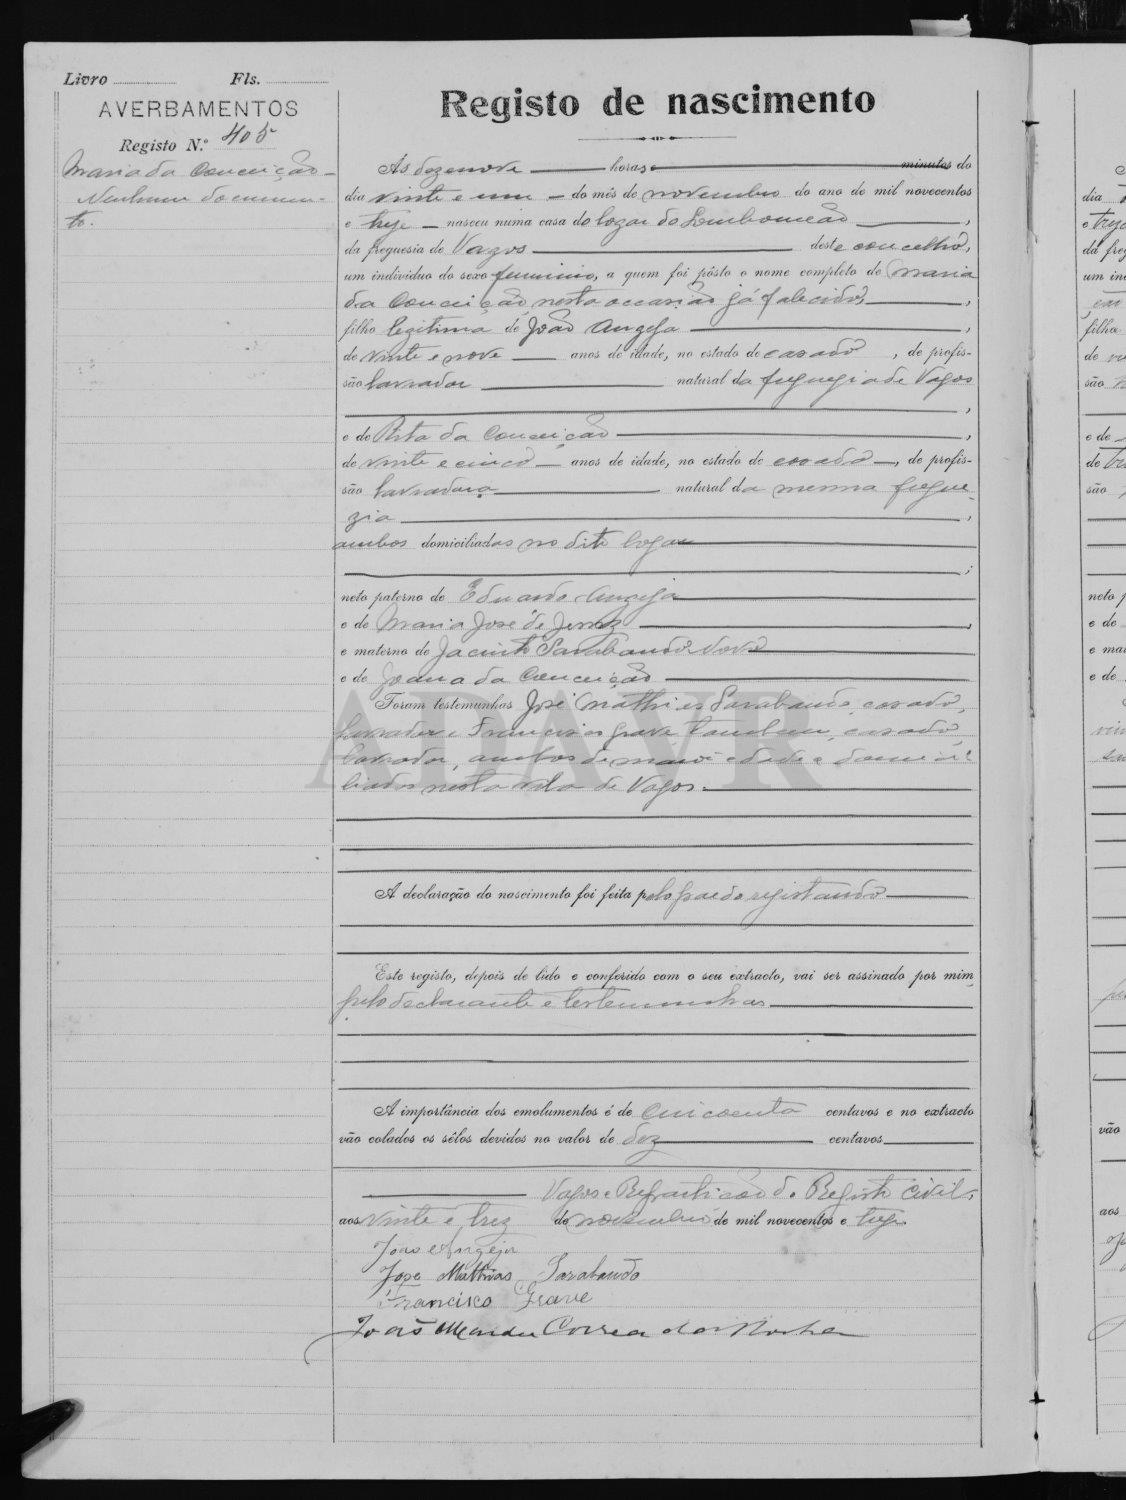 Livro Fls.
AVERBAMENTOS
Registo N.º 405
Maria da Conceição -
Nenhum documen-
to.
Registo de nascimento
Ás dezenove horas e minutos do
dia vinte e um do mês de novembro do ano de mil novecentos
e treze nasceu numa casa do logar do Lombomeão,
da freguesia de Vagos deste concelho,
um indivíduo do sexo feminino, a quem foi pôsto o nome completo de Maria
da Conceição, nesta occasião já falecido,
filho legitima de João Angeja,
de vinte e nove anos de idade, no estado de casado, de profis-
são lavrador natural da freguezia de Vagos
,
e de Rita da Conceição,
de vinte e cinco anos de idade, no estado de casada, de profis-
são lavradora natural da mesma fregue-
zia,
ambos domiciliados no dito logar
;
neto paterno de Eduardo Angeja
e de Maria José de Jesus,
e materno de Jacinto Sarabando Novo
e de Joana da Conceição
Foram testemunhas José Mathias Sarabando, casado,
lavrador e Francisco Grave tambem casado,
lavrador, ambos de maior edade e domici-
liados nesta vila de Vagos.
A declaração do nascimento foi feita pelo pae do registando
Este registo, depois de lido e conferido com o seu extracto, vai ser assinado por mim,
pelo declarante e testemunhas
A importância dos emolumentos é de cincoenta centavos e no extracto
vão colados os sêlos devidos no valor de dez centavos
Vagos e Repartição do Registo Civil,
aos vinte e trez de novembro de mil novecentos e treze
João Angeja
Jose Mathias Sarabando
Francisco Grave
João Mendes Correa da Rocha
ADAVR